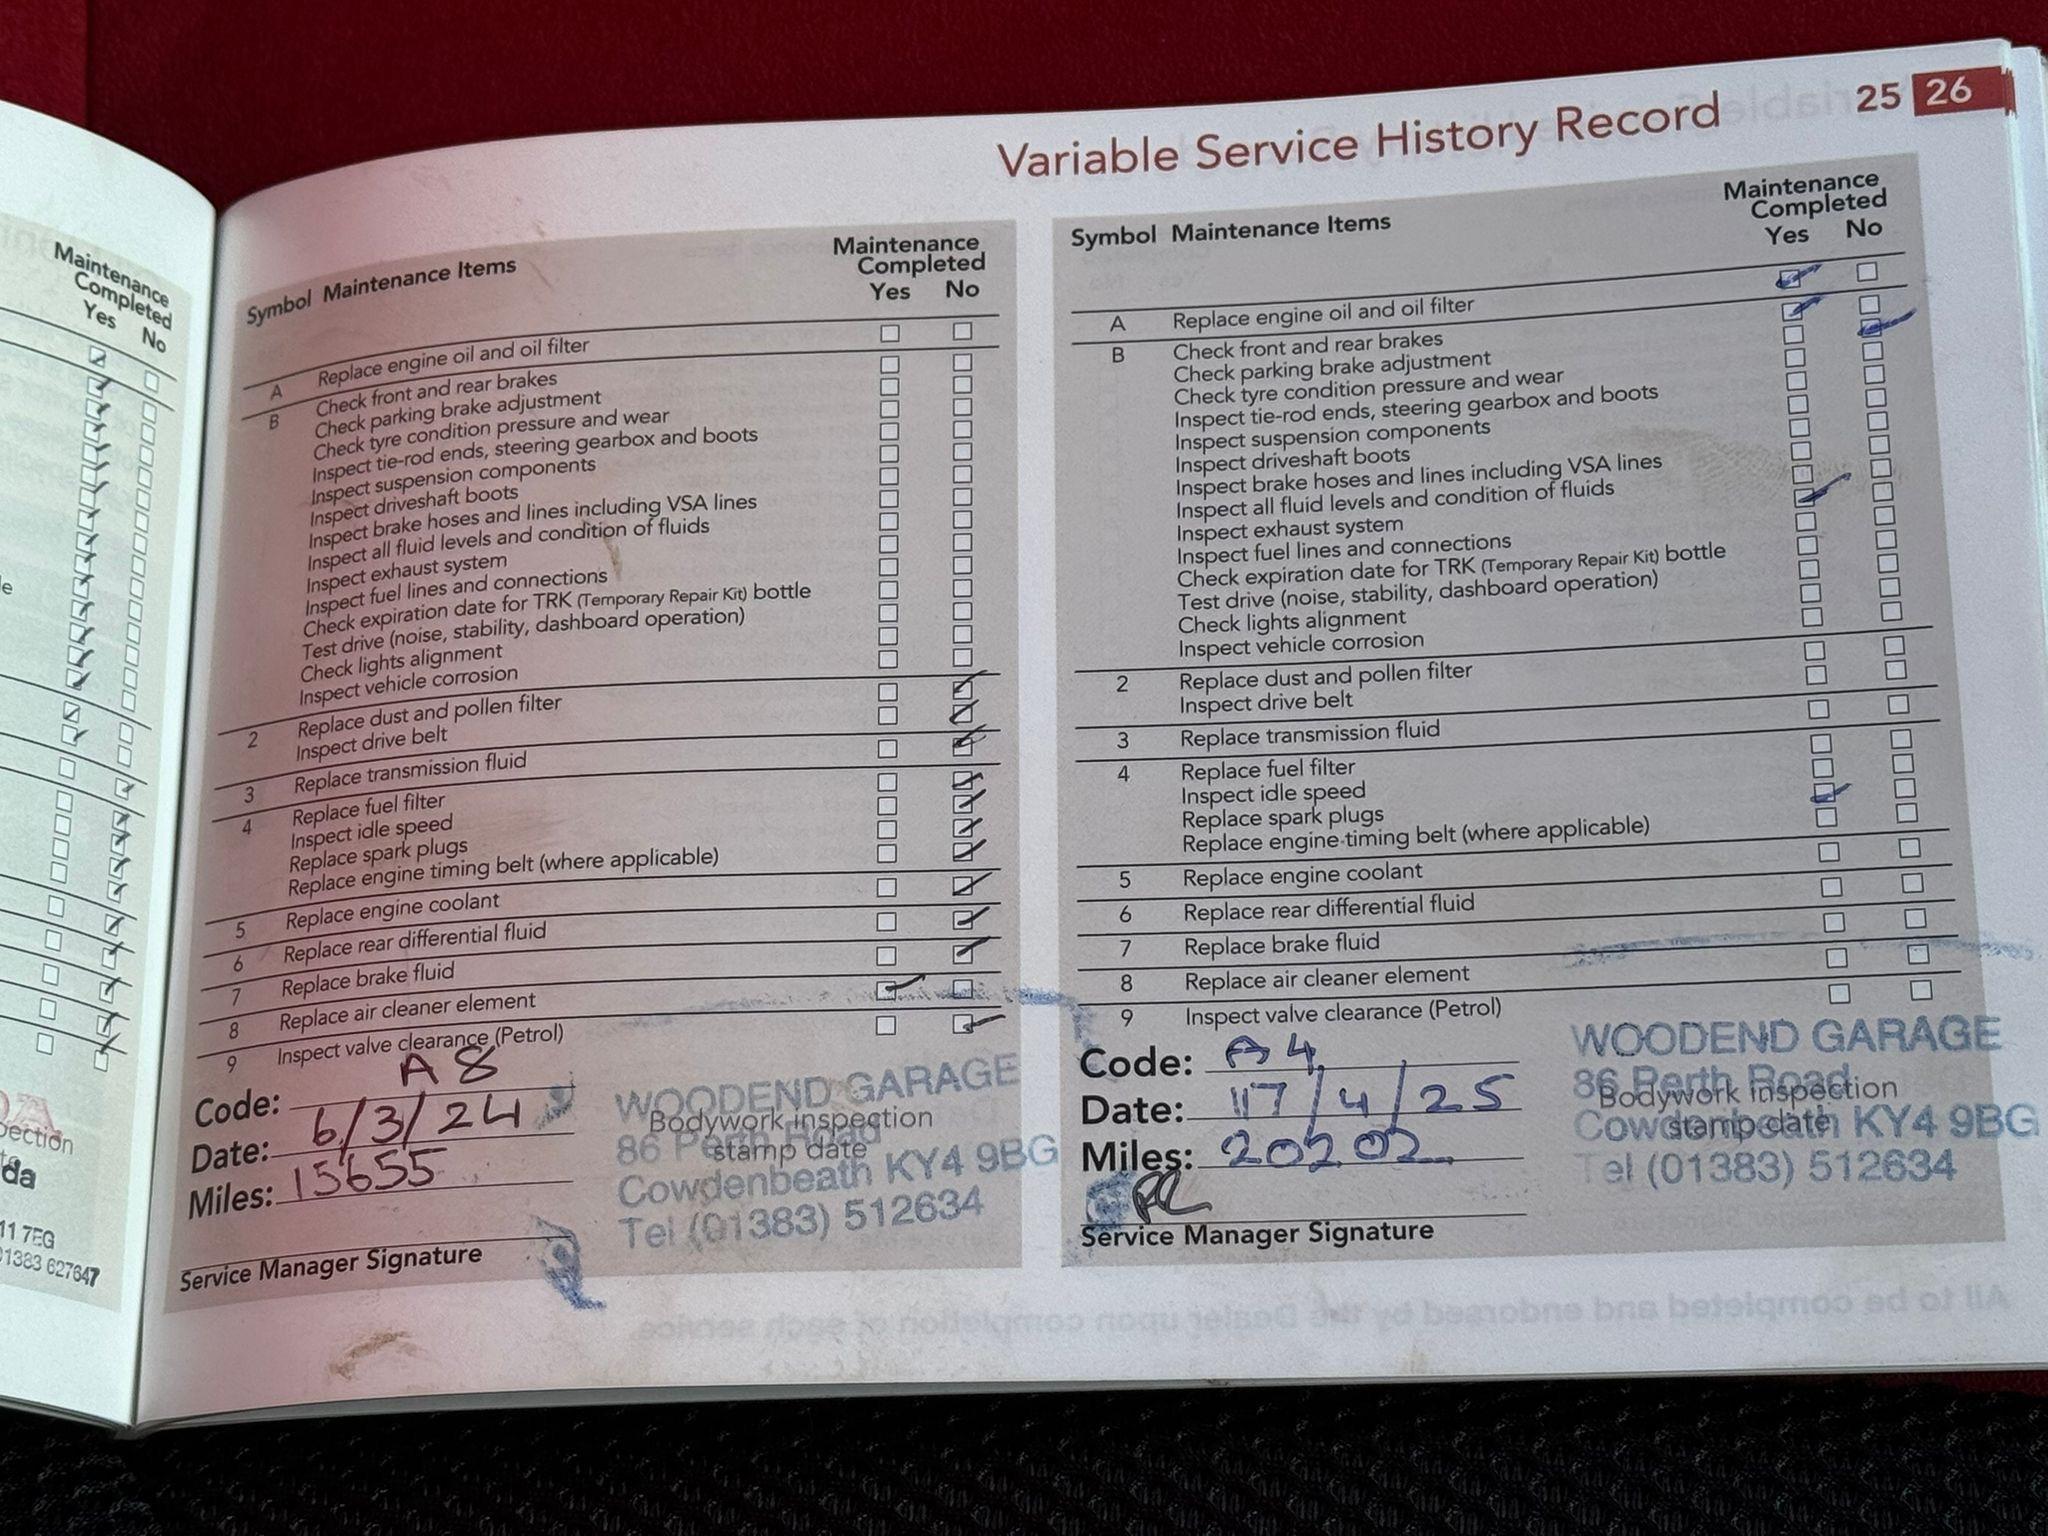 Variable Service History Record 25 26
Maintenance
Completed
Yes No
e
ection
da
11 7EG
01383 627647
Symbol Maintenance Items Maintenance
Completed
Yes No
A Replace engine oil and oil filter
B Check front and rear brakes
Check parking brake adjustment
Check tyre condition pressure and wear
Inspect tie-rod ends, steering gearbox and boots
Inspect suspension components
Inspect driveshaft boots
Inspect brake hoses and lines including VSA lines
Inspect all fluid levels and condition of fluids
Inspect exhaust system
Inspect fuel lines and connections
Check expiration date for TRK (Temporary Repair Kit) bottle
Test drive (noise, stability, dashboard operation)
Check lights alignment
Inspect vehicle corrosion
2 Replace dust and pollen filter
Inspect drive belt
3 Replace transmission fluid
4 Replace fuel filter
Inspect idle speed
Replace spark plugs
Replace engine timing belt (where applicable)
5 Replace engine coolant
6 Replace rear differential fluid
7 Replace brake fluid
8 Replace air cleaner element
9 Inspect valve clearance (Petrol)
Code: A 8
Date: 6/3/24
Miles: 15655
Service Manager Signature
Bodywork inspection
stamp date
WOODEND GARAGE
86 Perth Road
Cowdenbeath KY4 9BG
Tel (01383) 512634
Symbol Maintenance Items Maintenance
Completed
Yes No
A Replace engine oil and oil filter
B Check front and rear brakes
Check parking brake adjustment
Check tyre condition pressure and wear
Inspect tie-rod ends, steering gearbox and boots
Inspect suspension components
Inspect driveshaft boots
Inspect brake hoses and lines including VSA lines
Inspect all fluid levels and condition of fluids
Inspect exhaust system
Inspect fuel lines and connections
Check expiration date for TRK (Temporary Repair Kit) bottle
Test drive (noise, stability, dashboard operation)
Check lights alignment
Inspect vehicle corrosion
2 Replace dust and pollen filter
Inspect drive belt
3 Replace transmission fluid
4 Replace fuel filter
Inspect idle speed
Replace spark plugs
Replace engine timing belt (where applicable)
5 Replace engine coolant
6 Replace rear differential fluid
7 Replace brake fluid
8 Replace air cleaner element
9 Inspect valve clearance (Petrol)
Code: A 4
Date: 17/4/25
Miles: 20202
Service Manager Signature
Bodywork inspection
stamp date
WOODEND GARAGE
86 Perth Road
Cowdenbeath KY4 9BG
Tel (01383) 512634
All to be completed and endorsed by the Dealer upon completion of each service